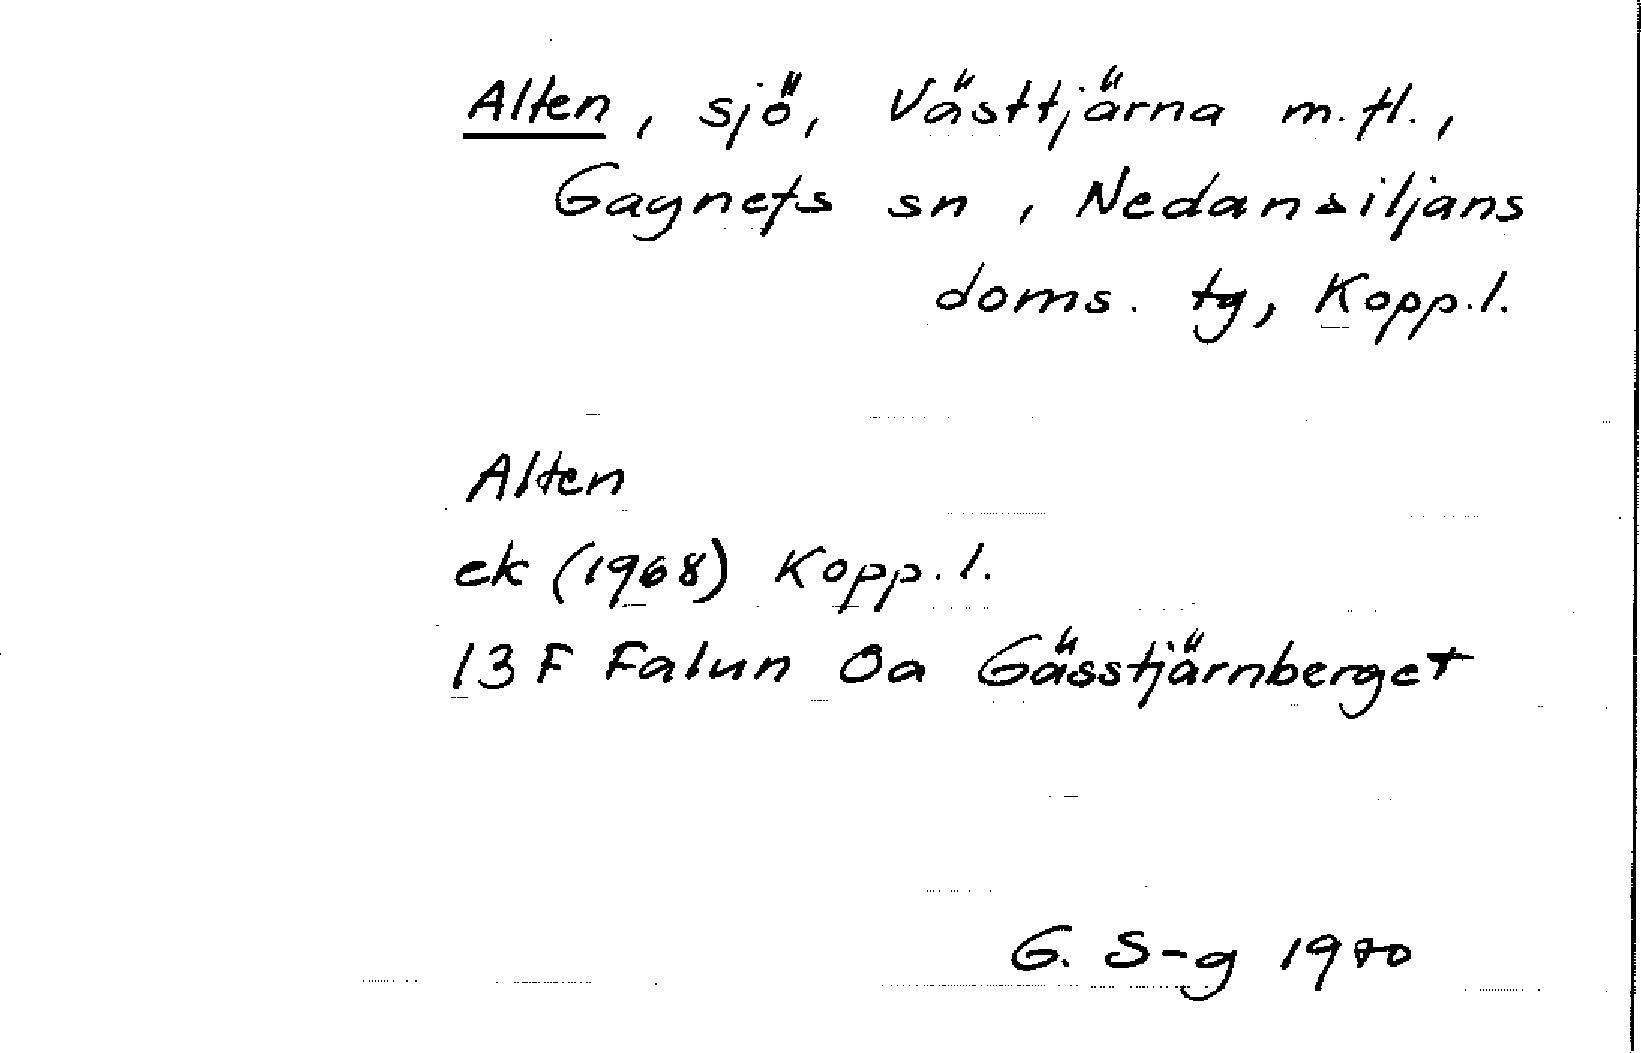 Alten, sjö, Västtjärna m.fl.,
Gagnefs sn, Nedansiljans
doms. tg, Kopp.l.
Alten
ek (1968) Kopp.l.
13 F Falun 0a Gässtjärnberget
G. S-g 1970